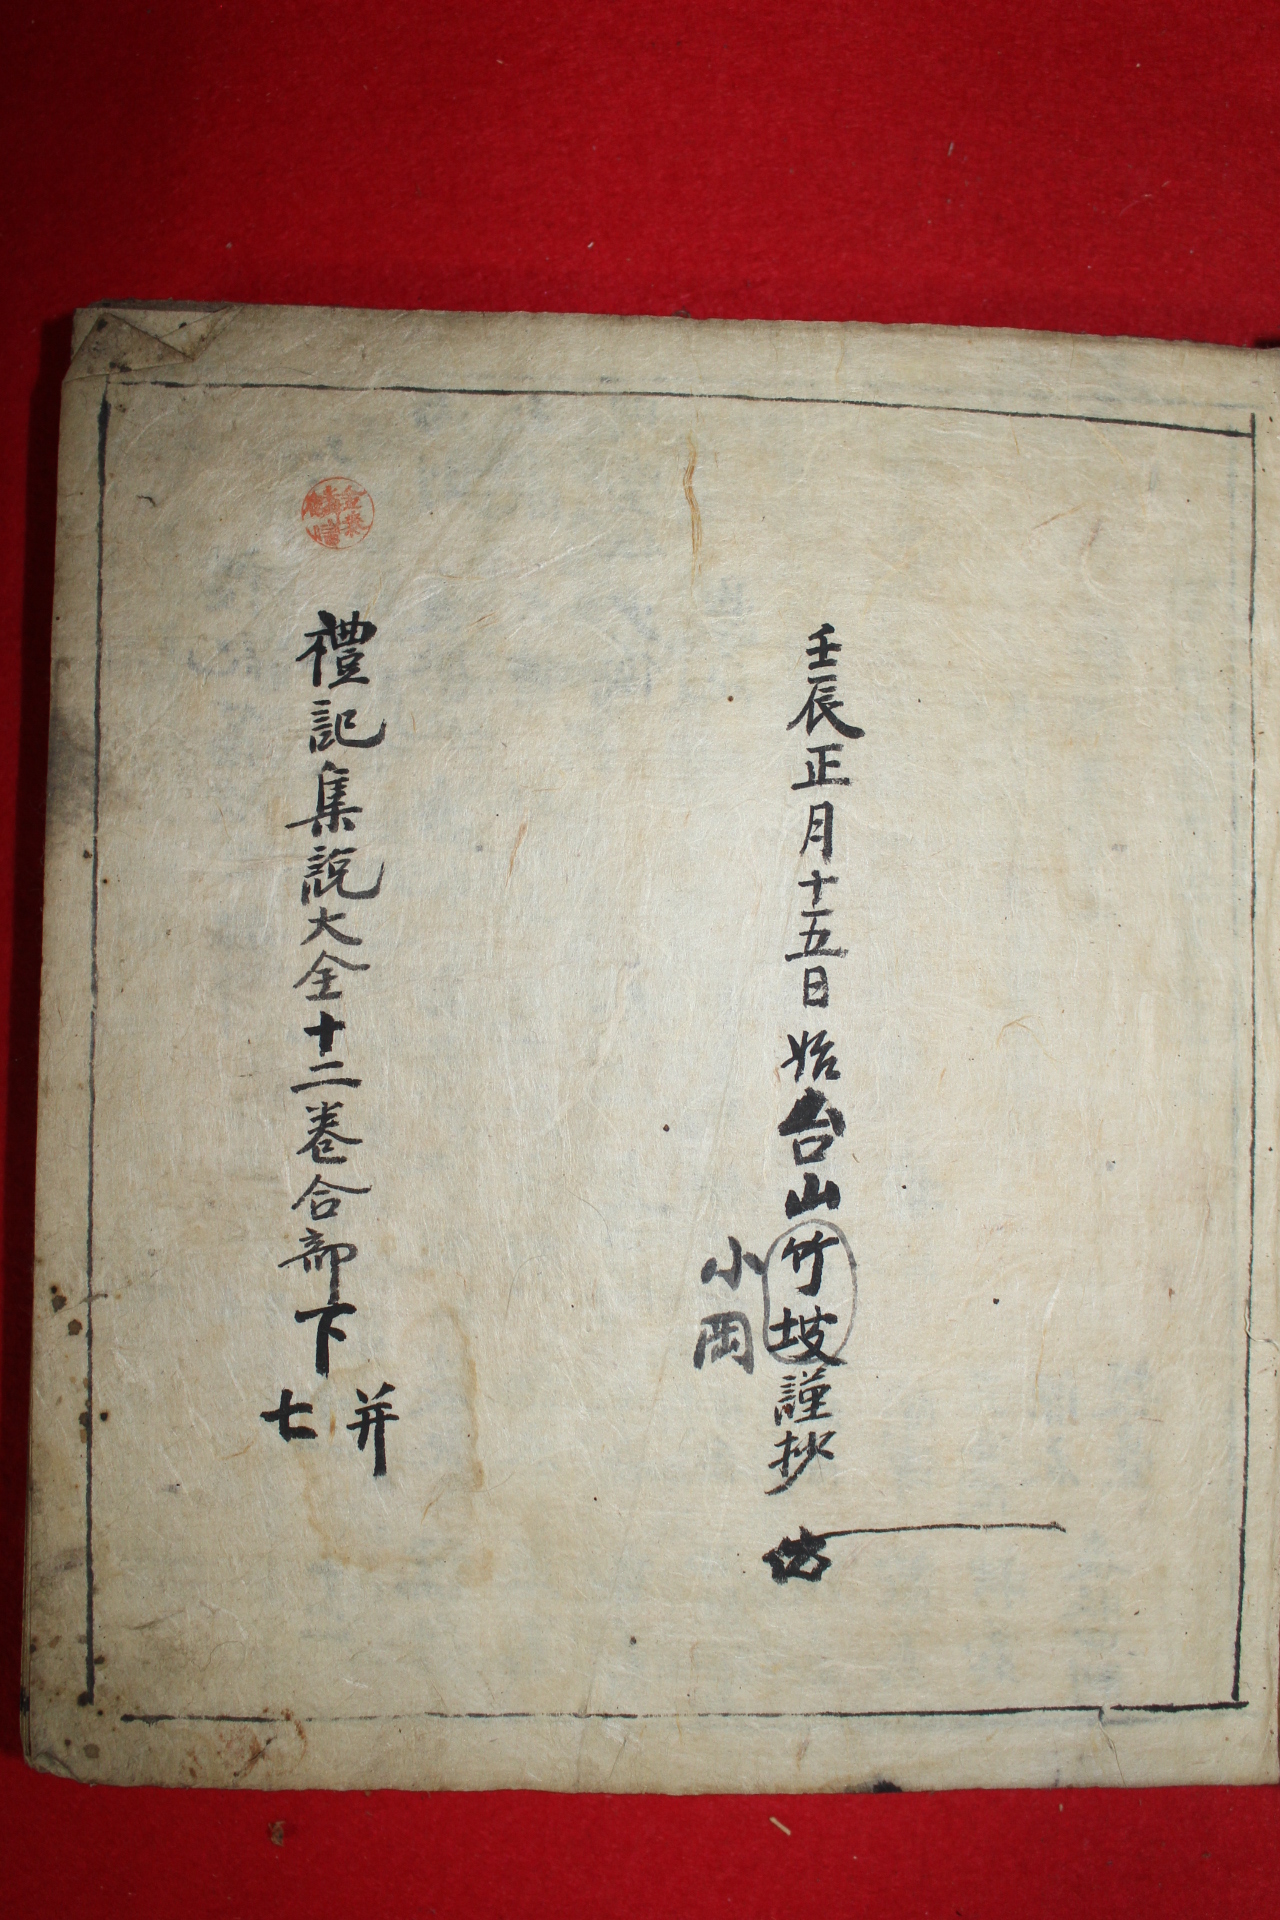 壬辰正月十五日始台山竹坡謹抄
小岡
禮記集說大全十二卷合部下
并
七